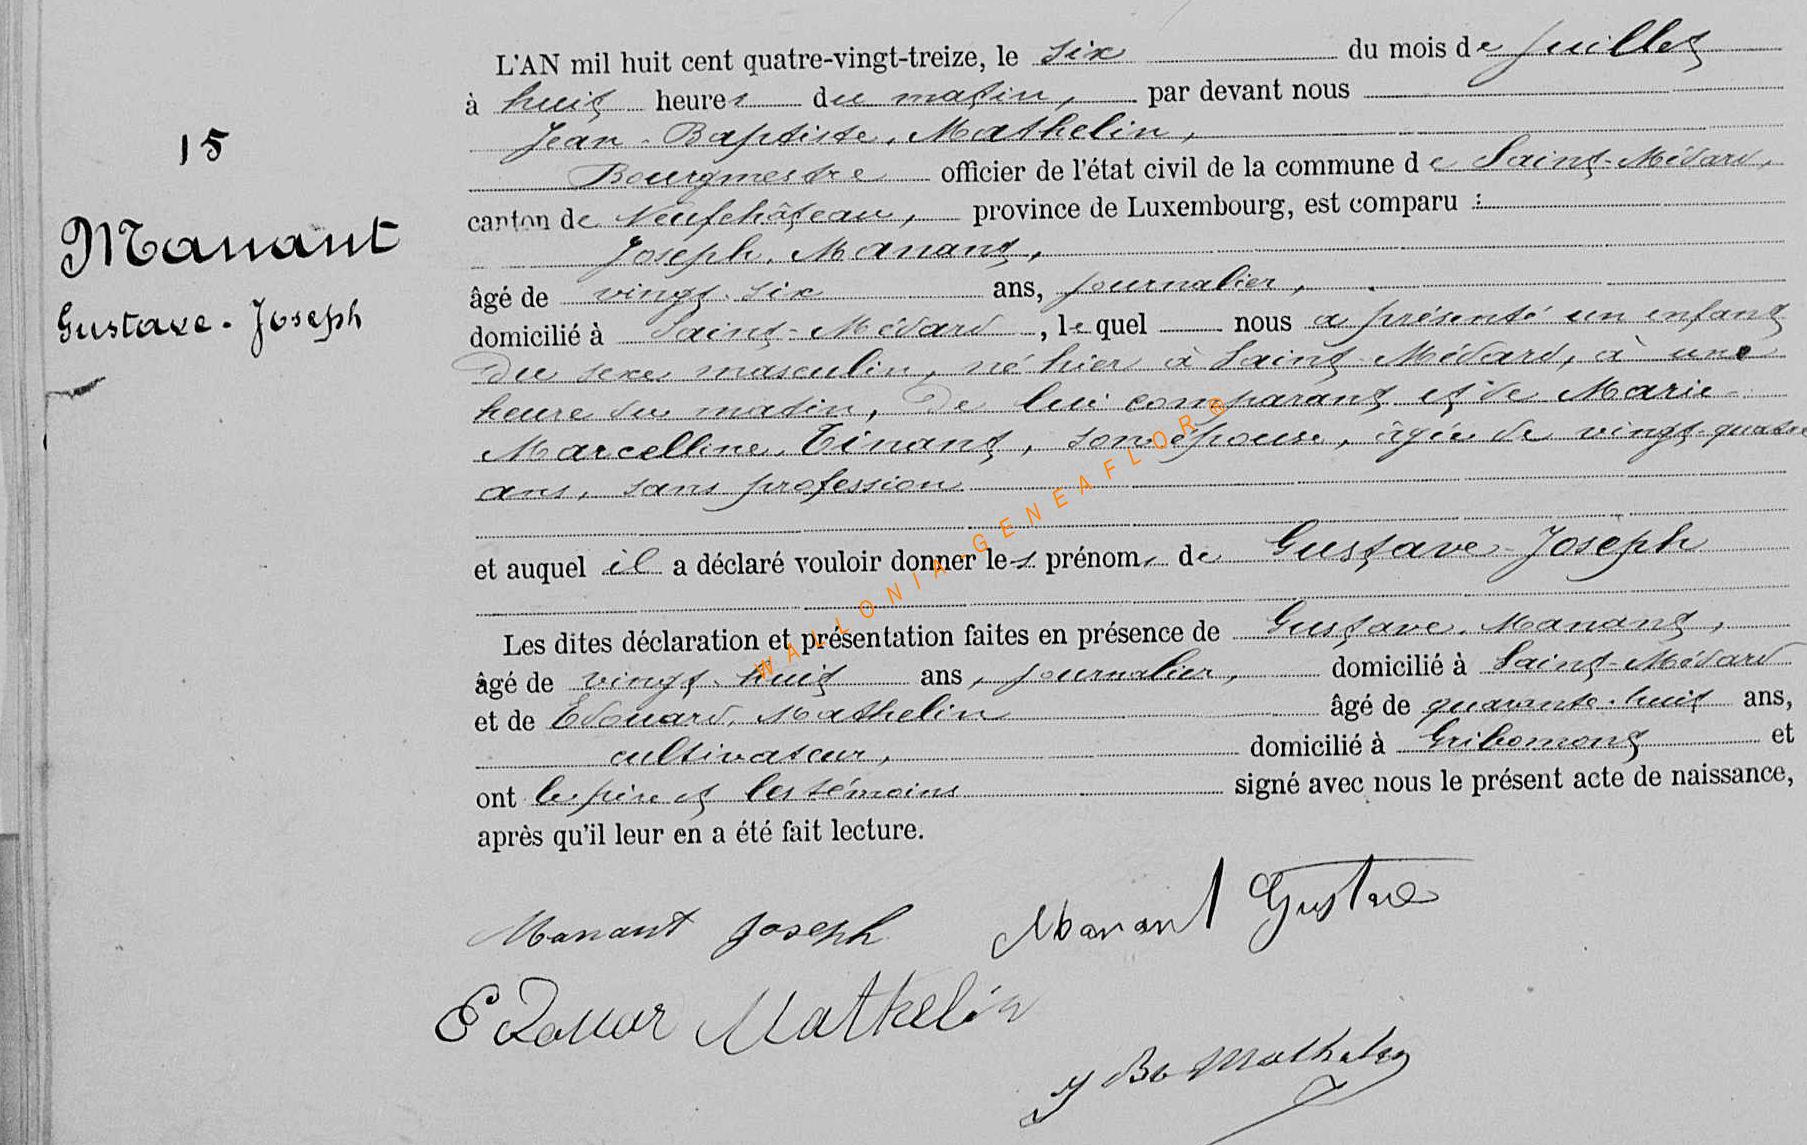 15
Manant
Gustave-Joseph
L'AN mil huit cent quatre-vingt-treize, le six du mois de juillet
à huit heures du matin, par devant nous
Jean-Baptiste Mathelin,
Bourgmestre officier de l'état civil de la commune de Saint-Médard,
canton de Neufchâteau, province de Luxembourg, est comparu :
Joseph Manant,
âgé de vingt-six ans, journalier,
domicilié à Saint-Médard, lequel nous a présenté un enfant
du sexe masculin, né hier à Saint-Médard, à une
heure du matin, de lui comparant et de Marie-
Marcelline Tinant, son épouse, âgée de vingt-quatre
ans, sans profession
et auquel il a déclaré vouloir donner les prénoms de Gustave-Joseph
Les dites déclaration et présentation faites en présence de Gustave Manant,
âgé de vingt-huit ans, journalier, domicilié à Saint-Médard
et de Edouard Mathelin âgé de quarante-huit ans,
cultivateur, domicilié à Gribomont et
ont le père et les témoins signé avec nous le présent acte de naissance,
après qu'il leur en a été fait lecture.
Manant Joseph Manant Gustave
Edouar Mathelin
J Bte Mathelin
WALLONIA-GENEAFLOR®